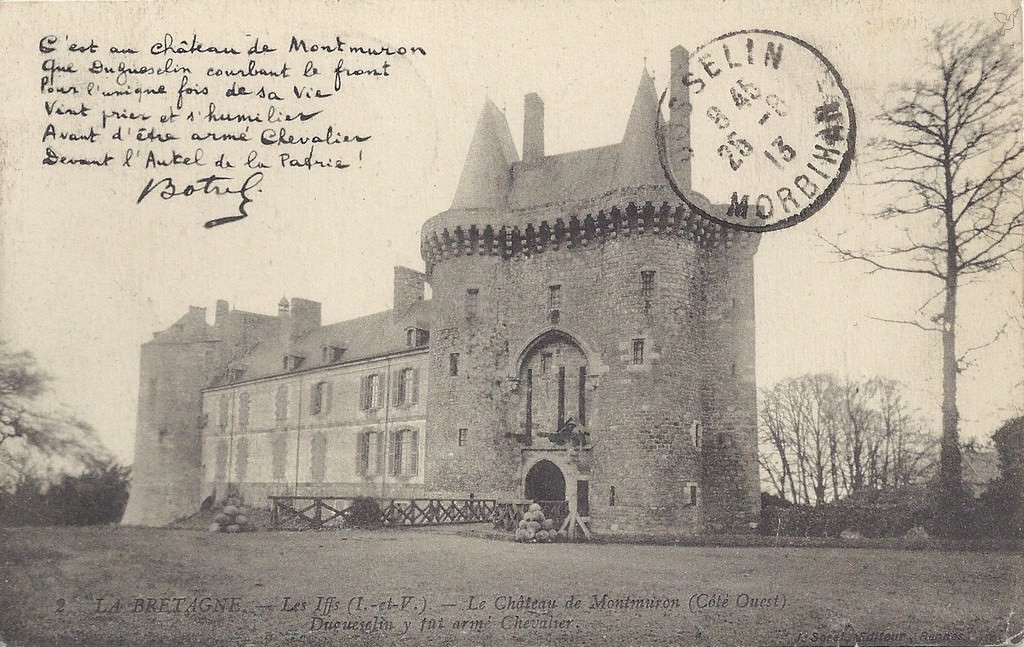 C'est au château de Montmuron
Que Duguesclin courbant le front
Pour l'unique fois de sa vie
Vint prier et s'humilier
Avant d'être armé Chevalier
Devant l'Autel de la Patrie !
Botrel.
JOSSELIN
9 45
25 - 8
13
MORBIHAN
2 LA BRETAGNE. — Les Iffs (I.-et-V.) — Le Château de Montmuron (Côté Ouest)
Duguesclin y fut armé Chevalier.
J. Sorel, Editeur, Rennes